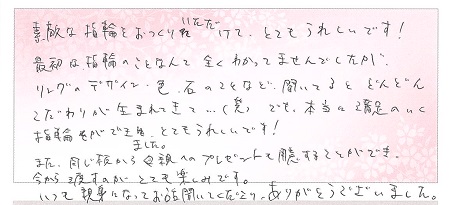 素敵な指輪をおつくりいただけて、とてもうれしいです！
最初は指輪のことなんて全くわかってませんでしたが、
リングのデザイン・色・石のことなど、聞いてるとどんどん
こだわりが生まれてきて…(笑) でも、本当に満足のいく
指輪ができました。とてもうれしいです！
また、同じ板から母親へのプレゼントも用意することができ、
今から渡すのがとても楽しみです。
いつも親身になってお話聞いてくださり、ありがとうございました。